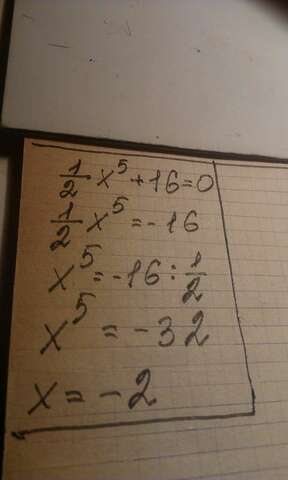 1/2 x⁵ + 16 = 0
1/2 x⁵ = -16
x⁵ = -16 : 1/2
x⁵ = -32
x = -2